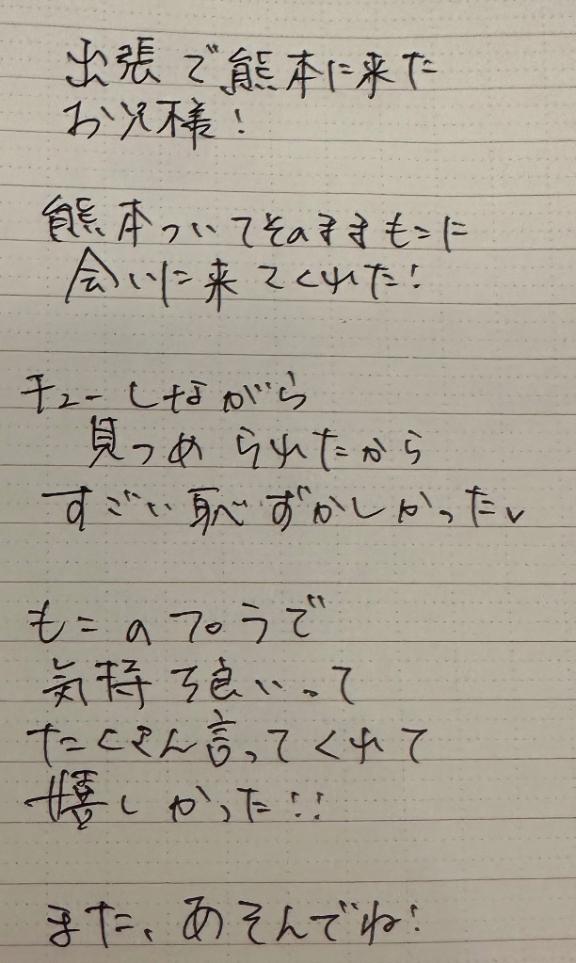 出張で熊本に来た
お兄様!
熊本ついてそのままもこに
会いに来てくれた!
チューしながら
見つめられたから
すごい恥ずかしかった、
もこのフ゜ラで
気持ち良いって
たくさん言ってくれて
嬉しかった!!
また、あそんでね!